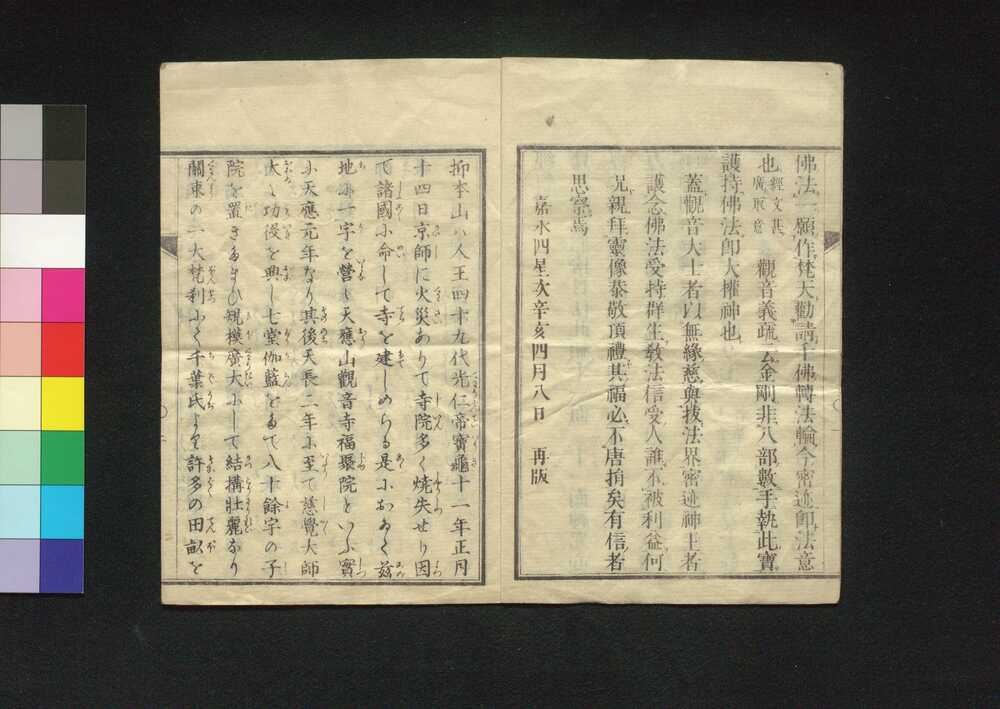 佛法一願作梵天勸請千佛轉法輪今密迹即法意
也經文甚廣取意觀音義疏云金剛非八部數手執此寶
護持佛法即大權神也
蓋觀音大士者以無緣慈與拔法界密迹神王者
護念佛法受持群生教法信受人誰不被利益何
况親拜靈像恭敬頂禮其福必不唐捐矣有信者
思察焉
嘉永四星次辛亥四月八日 再版
抑本山ハ人王四十九代光仁帝寶龜十一年正月
十四日京師に火災ありて寺院多く燒失せり因
て諸國に命して寺を建しめらる是におゐて茲
地に一宇を營し天應山觀音寺福聚院といふ實
に天應元年なり其後天長二年に至て慈覺大師
大に功德を興し七堂伽藍をたて八十餘宇の子
院を置きたまひ規模廣大にして結構壯麗なり
關東の一大梵刹にて千葉氏より許多の田畝を